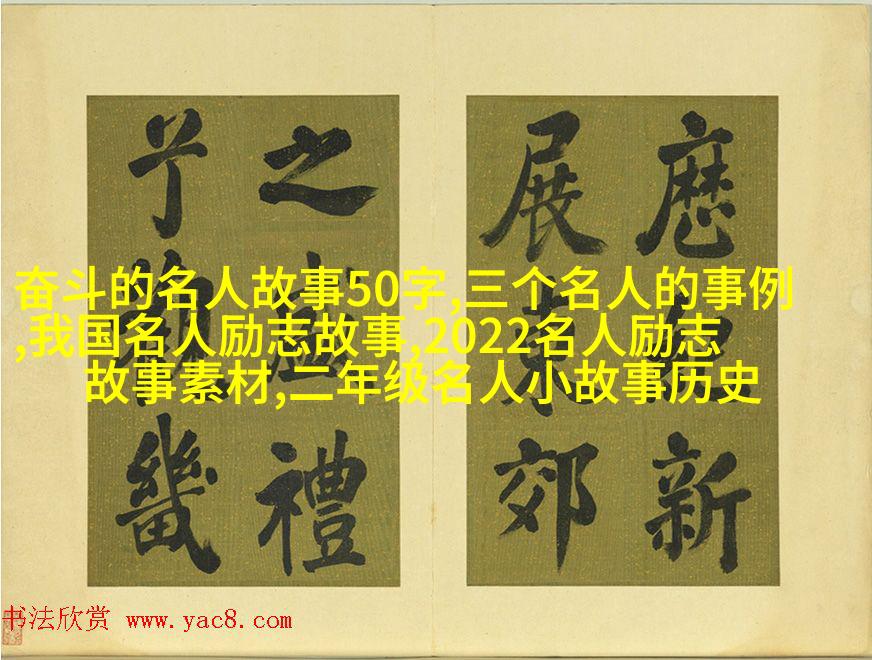 奋斗的名人故事50字,三个名人的事例
,我国名人励志故事,2022名人励志
故事素材,二年级名人小故事历史
新
展東郊
之盛禮
觀畿
书法欣赏 www.yac8.com